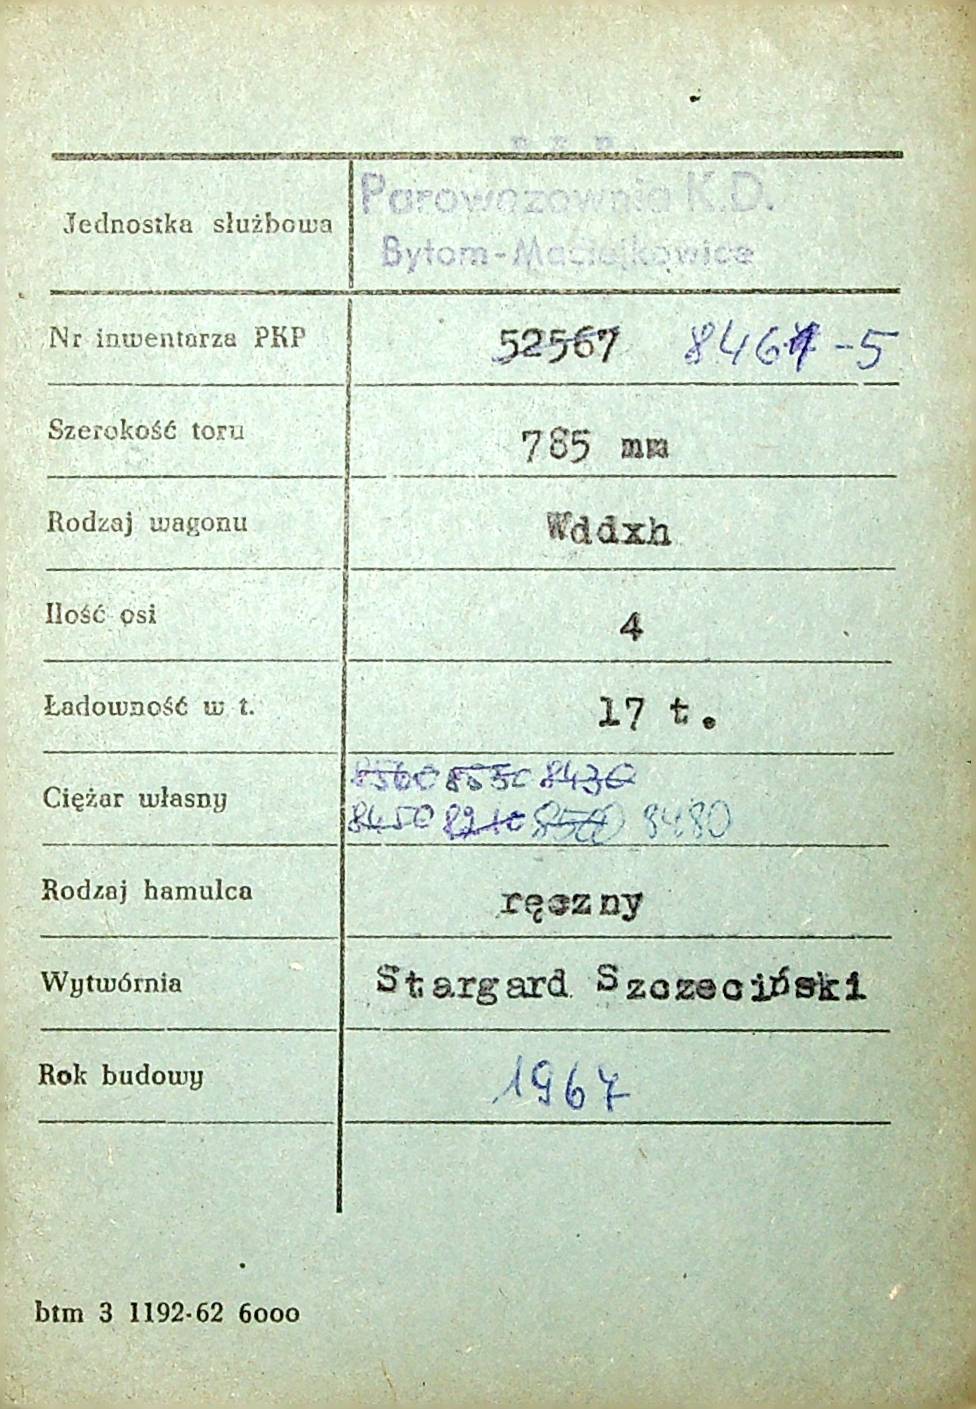 P. K. P.
Jednostka służbowa Parowozownia K.D.
Bytom-Maciejkowice
Nr inwentarza PKP 52567 8461-5
Szerokość toru 785 mm
Rodzaj wagonu Wddxh
Ilość osi 4
Ładowność w t. 17 t.
Ciężar własny 8560 8530 8430
8450 8210 8500 8480
Rodzaj hamulca ręczny
Wytwórnia Stargard Szczeciński
Rok budowy 1967
btm 3 1192-62 6000